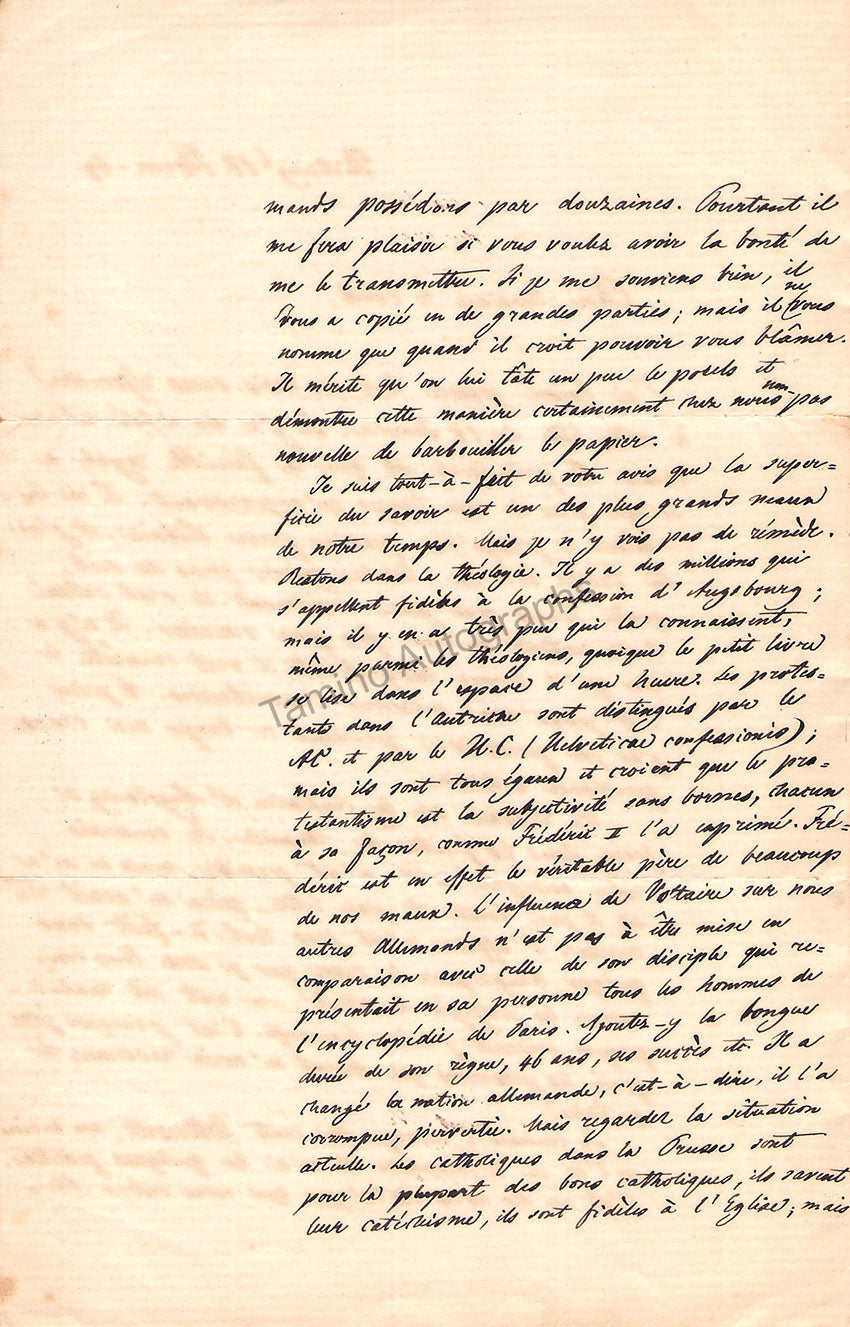 mands possédons par douzaines. Pourtant il
me fera plaisir si vous voulez avoir la bonté de
me le transmettre. Si je me souviens bien, il
vous a copié en de grandes parties; mais il ne vous
nomme que quand il croit pouvoir vous blâmer.
Il mérite qu'on lui tâte un peu le pouls et
démontre cette manière certainement chez nous non-pas
nouvelle de barbouiller le papier.
Je suis tout-à-fait de votre avis que la super=
ficie du savoir est un des plus grands maux
de notre temps. Mais je n'y vois pas de rémède.
Restons dans la théologie. Il y a des millions qui
s'appellent fidèles à la confession d'Augsbourg;
mais il y en a très peu qui la connaissent,
même parmi les théologiens, quoique le petit livre
se lise dans l'espace d'une heure. Les protes=
tants dans l'Autriche sont distingués par le
AC. et par le H.C. (Helveticae confessionis);
mais ils sont tous égaux et croient que le pro=
testantisme est la subjectivité sans bornes, chacun
à sa façon, comme Frédéric II l'a exprimé. Fré=
déric est en effet le véritable père de beaucoup
de nos maux. L'influence de Voltaire sur nous
autres Allemands n'est pas à être mise en
comparaison avec celle de son disciple qui re=
présentait en sa personne tous les hommes de
l'encyclopédie de Paris. Ajoutez-y la longue
durée de son règne, 46 ans, ses succès etc. Il a
changé la nation allemande, c'est-à-dire, il l'a
corrompue, pervertie. Mais regardez la situation
actuelle. Les catholiques dans la Prusse sont
pour la plupart des bons catholiques, ils savent
leur catéchisme, ils sont fidèles à l'Eglise; mais
Tamino Autographs